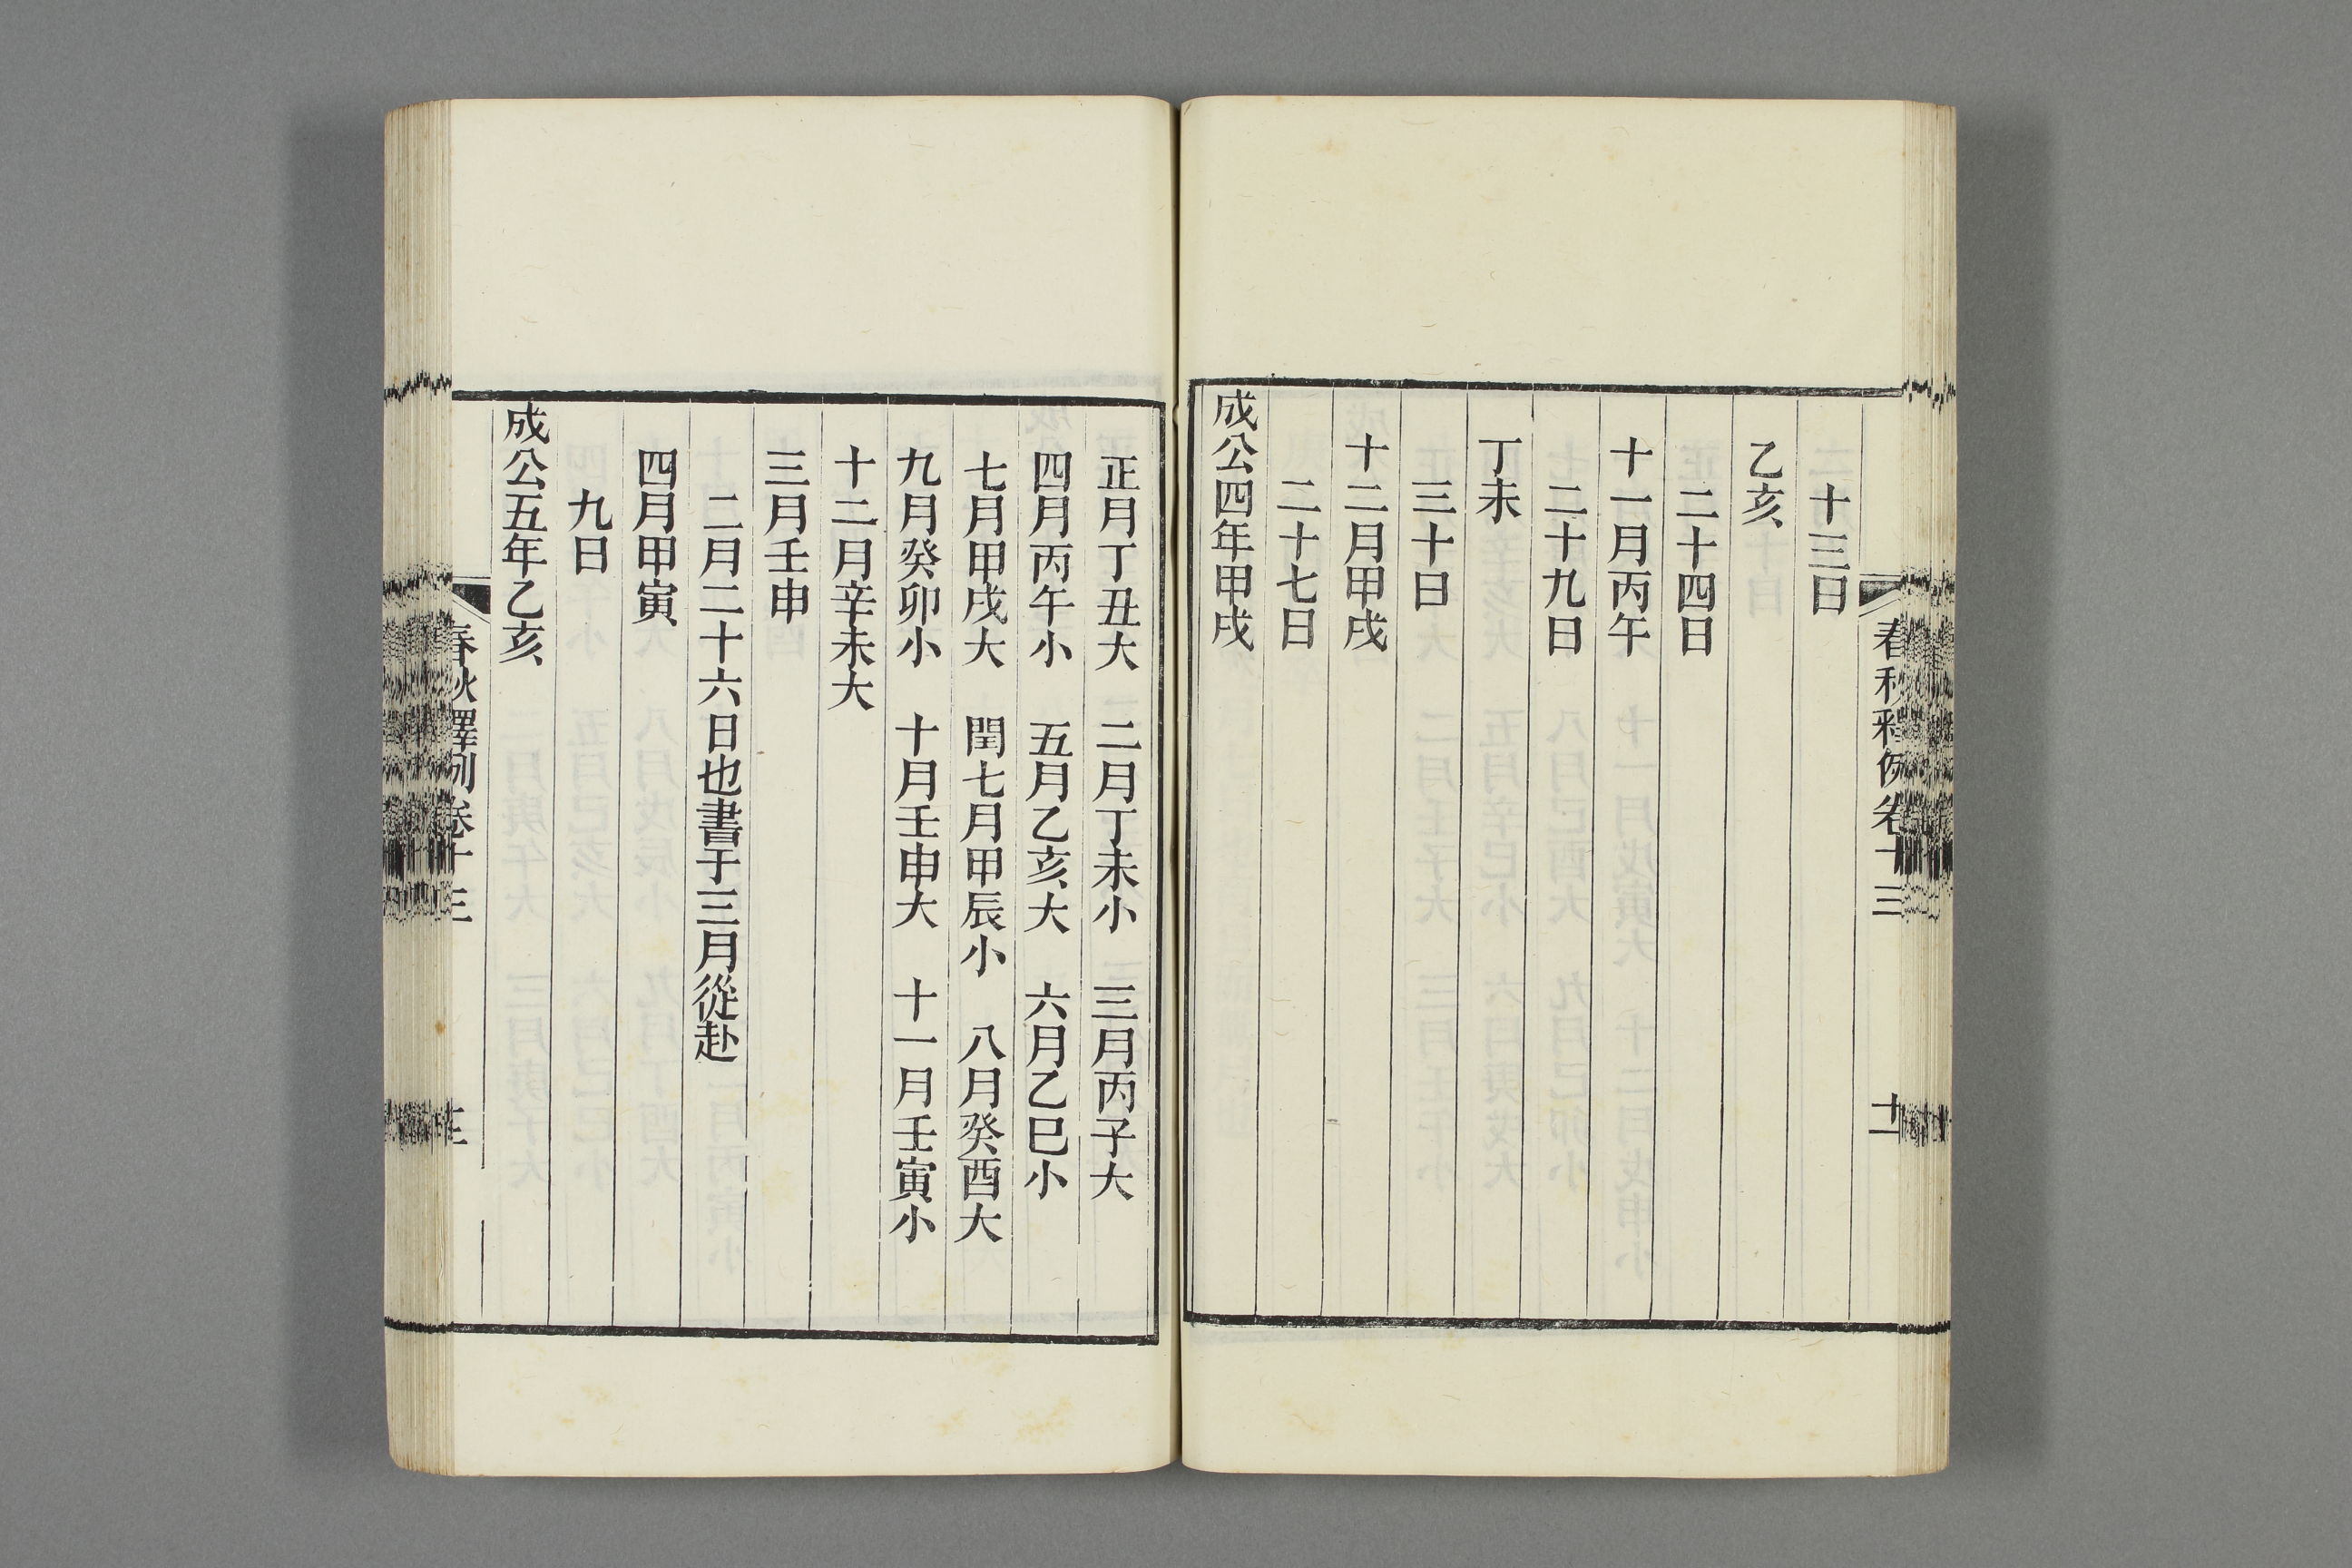 春秋釋例卷十三
十一
十三日
乙亥
二十四日
十一月丙午
二十九日
丁未
三十日
十二月甲戌
二十七日
成公四年甲戌
正月丁丑大　二月丁未小　三月丙子大
四月丙午小　五月乙亥大　六月乙巳小
七月甲戌大　閏七月甲辰小　八月癸酉大
九月癸卯小　十月壬申大　十一月壬寅小
十二月辛未大
三月壬申
二月二十六日也書于三月從赴
四月甲寅
九日
成公五年乙亥
春秋釋例卷十三